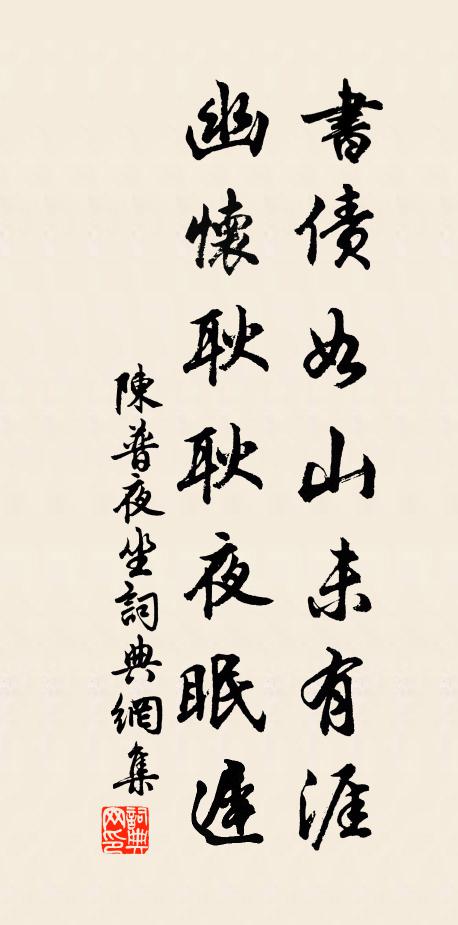 書債如山未有涯
幽懷耿耿夜眠遲
陳普夜坐詞典網集
詞典网印